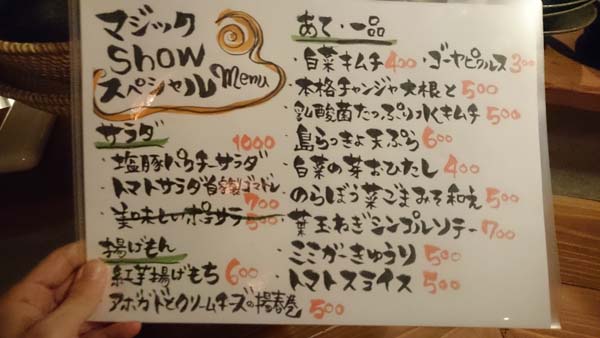 マジック
Show
スペシャル Menu
サラダ
1000
・塩豚パクチーサラダ
・トマトサラダ自家製ゴマドレ
700
・美味しいポテサラ 500
揚げもん
・紅芋揚げもち 600
・アボガドとクリームチーズの揚春巻 500
あて・一品
・白菜キムチ 400 ・ゴーヤピクルス 300
・本格チャンジャ大根と 500
・乳酸菌たっぷり水キムチ 500
・島らっきょ天ぷら 600
・白菜の芽おひたし 400
・のらぼう菜ごまみそ和え 500
・葉玉ねぎシンプルソテー 700
・ミミガーきゅうり 500
・トマトスライス 500